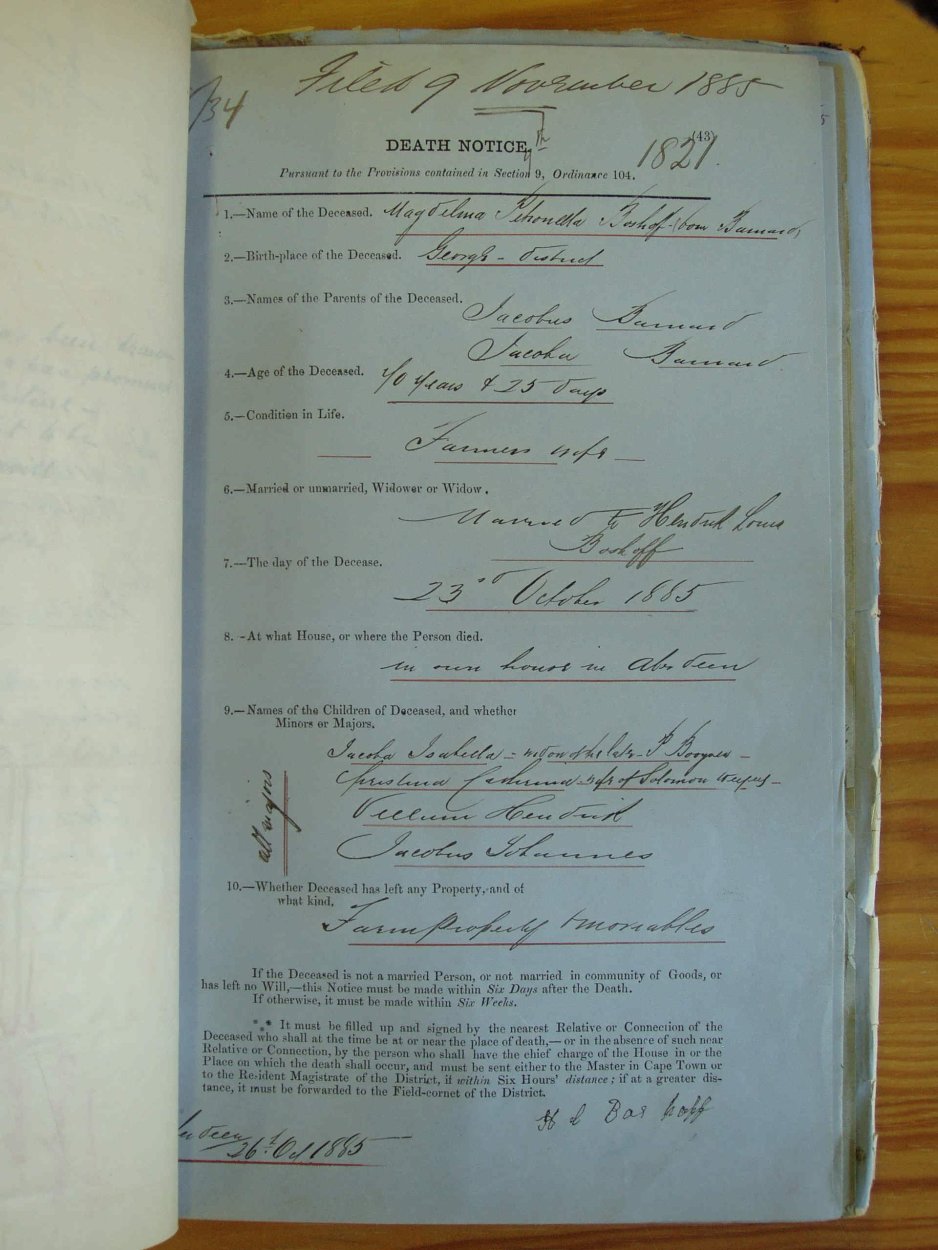 Filed 9 November 1885
/34
th
(43)
1821.
DEATH NOTICE,
Pursuant to the Provisions contained in Section 9, Ordinance 104.
1.—Name of the Deceased. Magdelina Petronella Boshoff (born Barnard)
2.—Birth-place of the Deceased. George - District
3.—Names of the Parents of the Deceased.
Jacobus Barnard
Jacoba Barnard
4.—Age of the Deceased. years & 25 days
5.—Condition in Life.
Farmers wife
6.—Married or unmarried, Widower or Widow.
Married to Hendrik Louis
Boshoff
7.—The day of the Decease.
23rd October 1885
8.—At what House, or where the Person died.
in own house in Aberdeen
9.—Names of the Children of Deceased, and whether
Minors or Majors.
Jacoba Isabella - widow of the late P
wife of Solomon
all majors
Willem Hendrik
Jacobus Johannes
10.—Whether Deceased has left any Property, and of
what kind.
Farm property & moveables
If the Deceased is not a married Person, or not married in community of Goods, or
has left no Will,—this Notice must be made within Six Days after the Death.
If otherwise, it must be made within Six Weeks.
*** It must be filled up and signed by the nearest Relative or Connection of the
Deceased who shall at the time be at or near the place of death,—or in the absence of such near
Relative or Connection, by the person who shall have the chief charge of the House in or the
Place on which the death shall occur, and must be sent either to the Master in Cape Town or
to the Resident Magistrate of the District, if within Six Hours' distance; if at a greater dis-
tance, it must be forwarded to the Field-cornet of the District.
H L Boshoff
26t Oct 1885